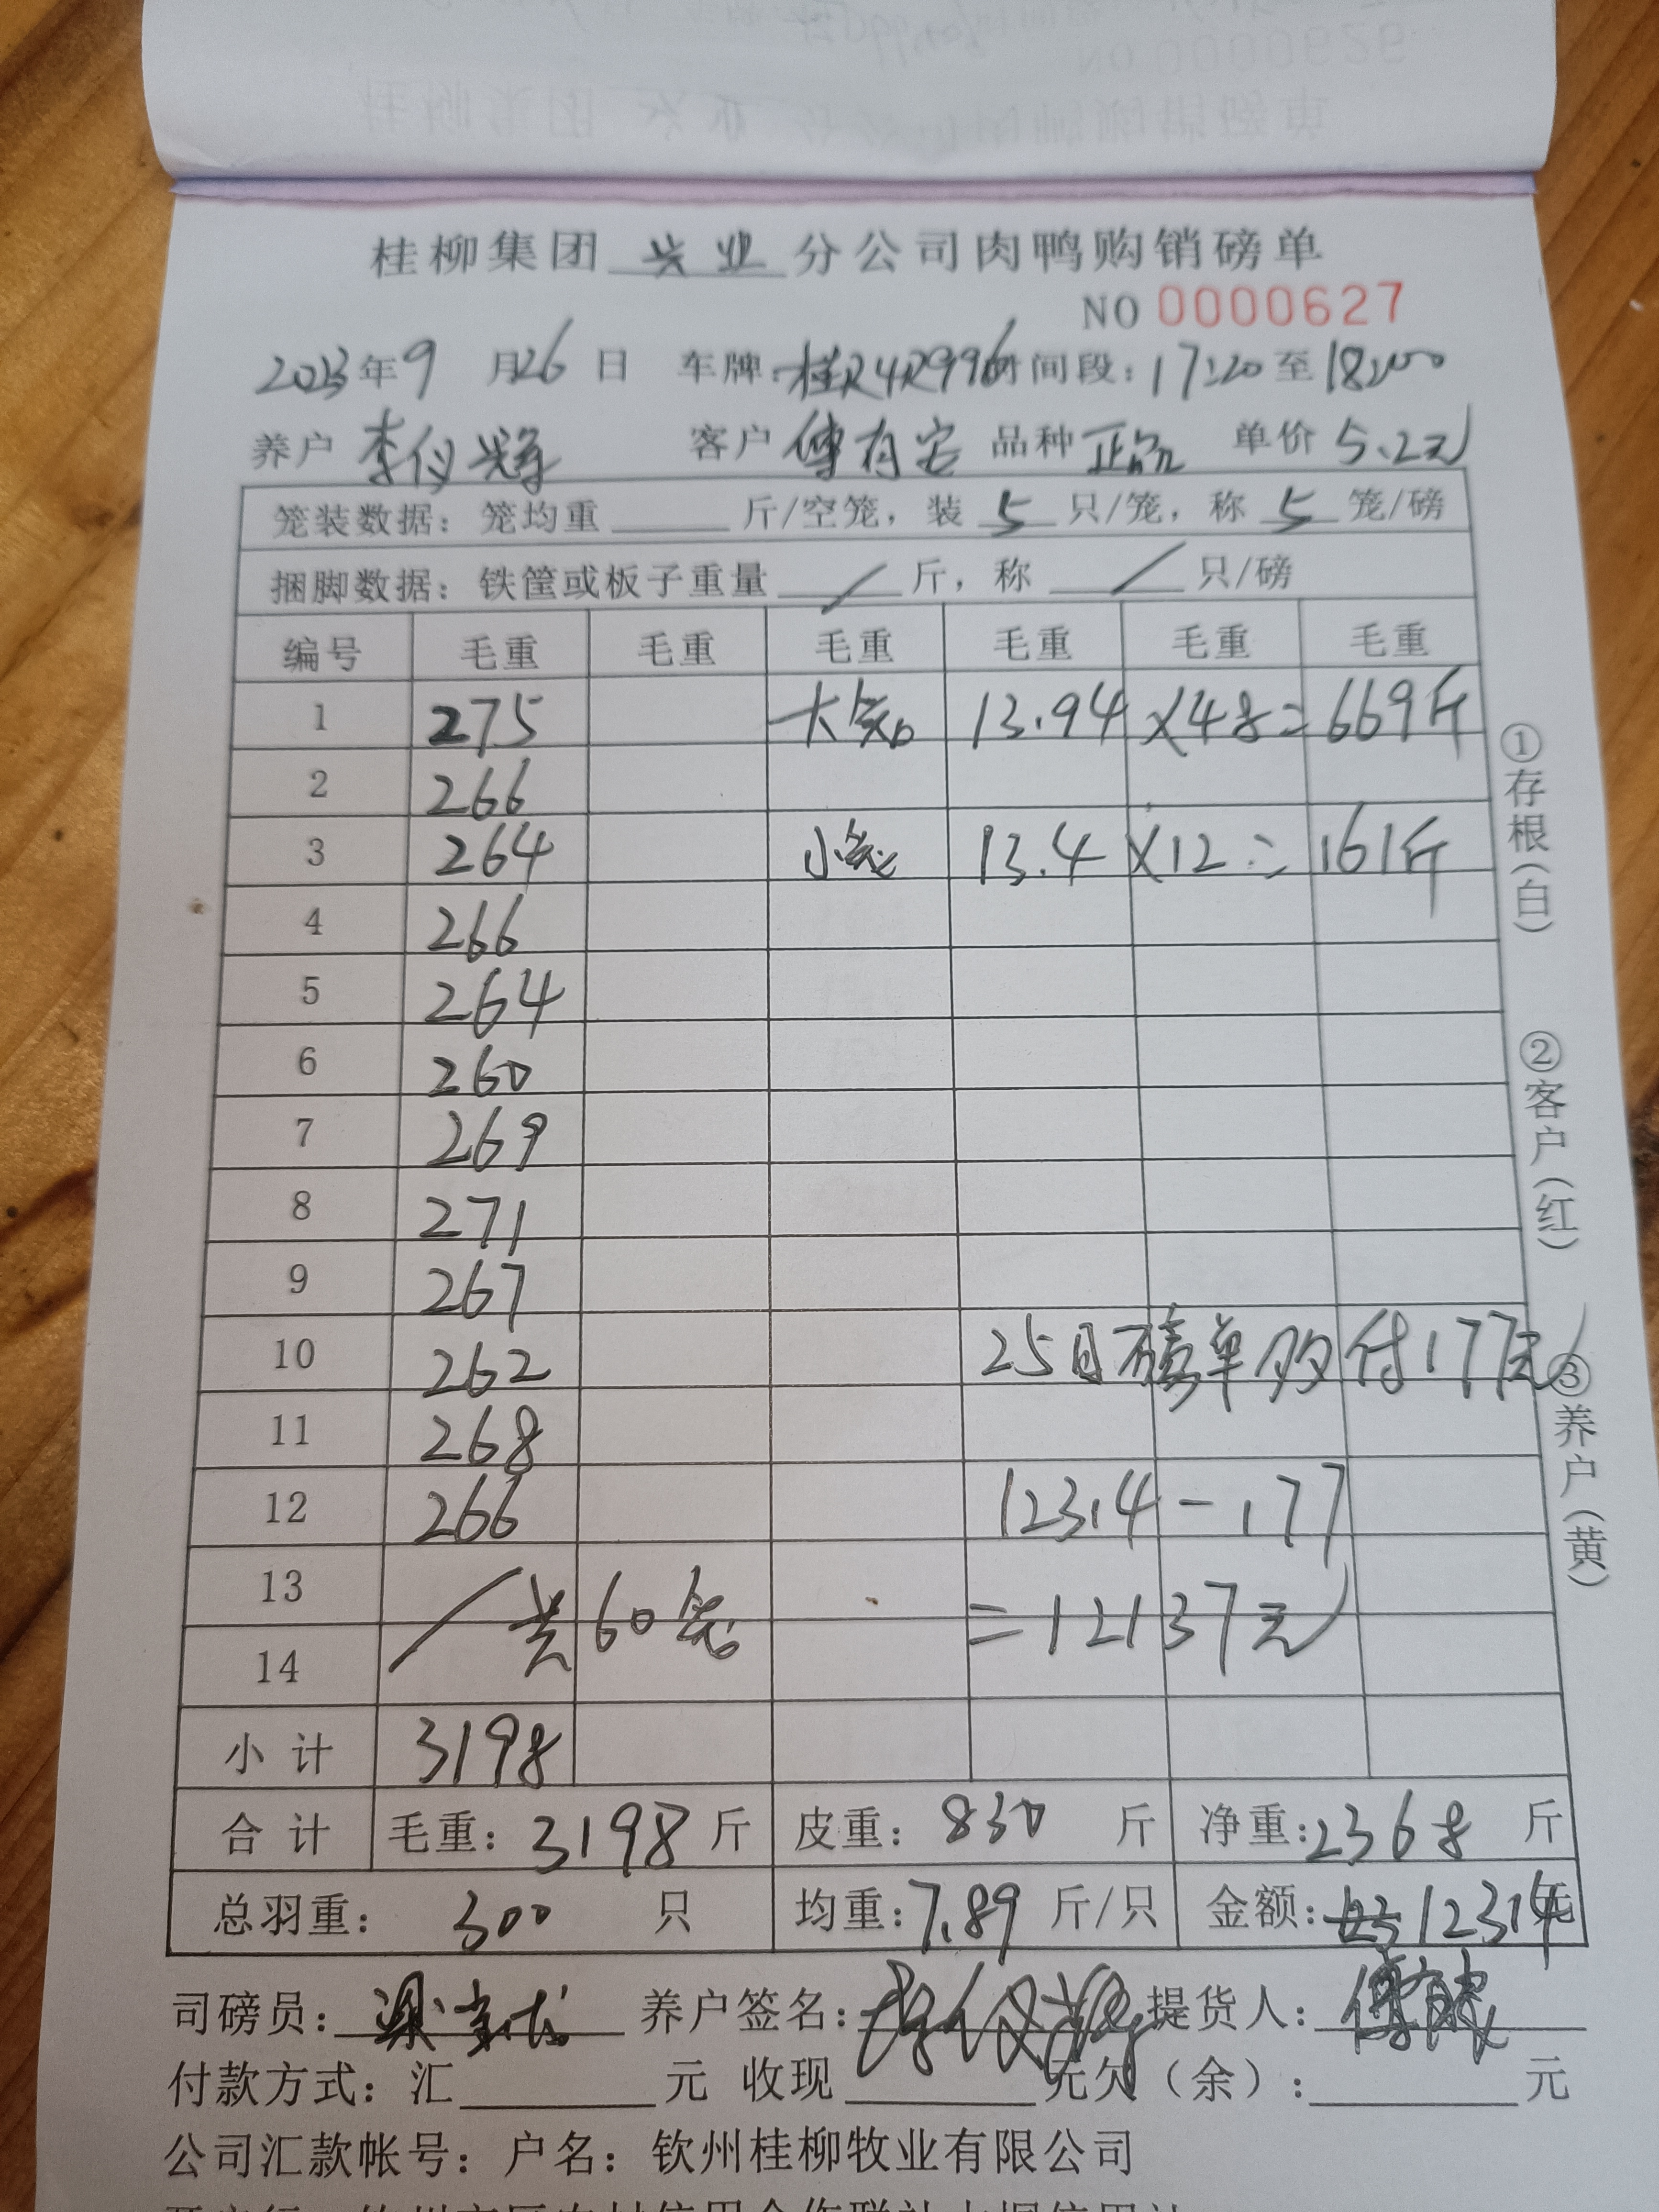 桂柳集团 兴业 分公司肉鸭购销磅单
NO 0000627
2023年9月26日 车牌:桂R4R996 时间段:17:20至18:00
养户 李仪兴 客户 傅有安 品种 正品 单价 5.2元
笼装数据:笼均重 斤/空笼,装 5 只/笼,称 5 笼/磅
捆脚数据:铁筐或板子重量 / 斤,称 / 只/磅
编号 毛重 毛重 毛重 毛重 毛重 毛重
1 275 大笼 13.94 ×48= 669斤
2 266
3 264 小笼 13.4 ×12= 161斤
4 266
5 264
6 260
7 269
8 271
9 267
10 262 25日磅单 付177元
11 268
12 266 12314-177
13 共60笼 =12137元
14
小计 3198
合计 毛重:3198斤 皮重:830斤 净重:2368斤
总羽重:300只 均重:7.89斤/只 金额:12314元
司磅员: 养户签名: 提货人:
付款方式:汇 元 收现 元欠(余): 元
公司汇款帐号:户名:钦州桂柳牧业有限公司
①存根(白)
②客户(红)
③养户(黄)